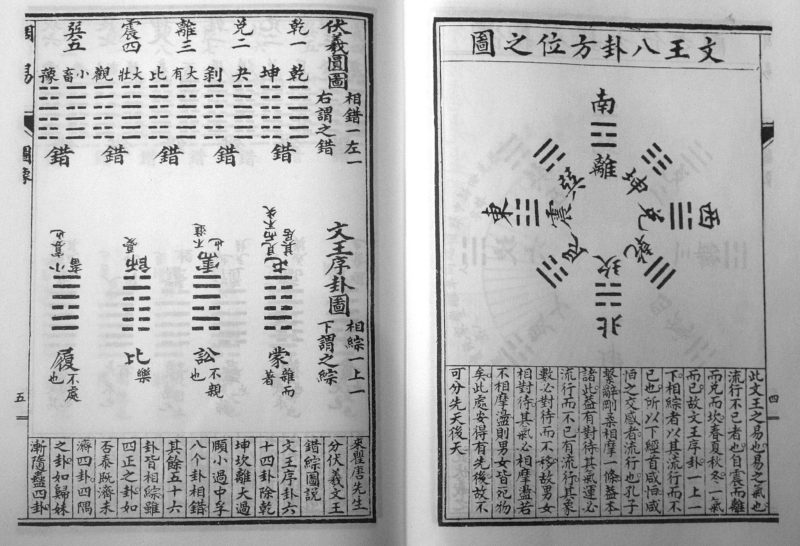 文王八卦方位之圖
南
離
巽
坤
東
震
兌
西
艮
乾
坎
北
此文王之易也易之氣也
流行不已者也自震而離
而兌而坎春夏秋冬一氣
而已故文王序卦一上一
下相綜者以其流行而不
已也所以下經首咸恒咸
恒之交感者流行也孔子
繫辭剛柔相摩一條蓋本
諸此蓋有對待其氣運必
流行而不已有流行其象
數必對待而不移故男女
相對待其氣必相摩盪若
不相摩盪則男女皆死物
矣此處安得有先後故不
可分先天後天
四
伏羲圓圖
相錯一左一
右謂之錯
乾一
兌二
離三
震四
巽五
乾
坤
夬
剝
大有
比
大壯
觀
小畜
豫
錯
錯
錯
錯
錯
文王序卦圖
相綜一上一
下謂之綜
屯見而不失其居
蒙雜而著
需不進也
訟不親也
師憂
比樂
小畜寡也
履不處也
來瞿唐先生
分伏羲文王
錯綜圖說
文王序卦六
十四卦除乾
坤坎離大過
頤小過中孚
八个卦相錯
其餘五十六
卦皆相綜雖
四正之卦如
否泰既濟未
濟四卦四隅
之卦如歸妹
漸隨蠱四卦
易
圖像
五